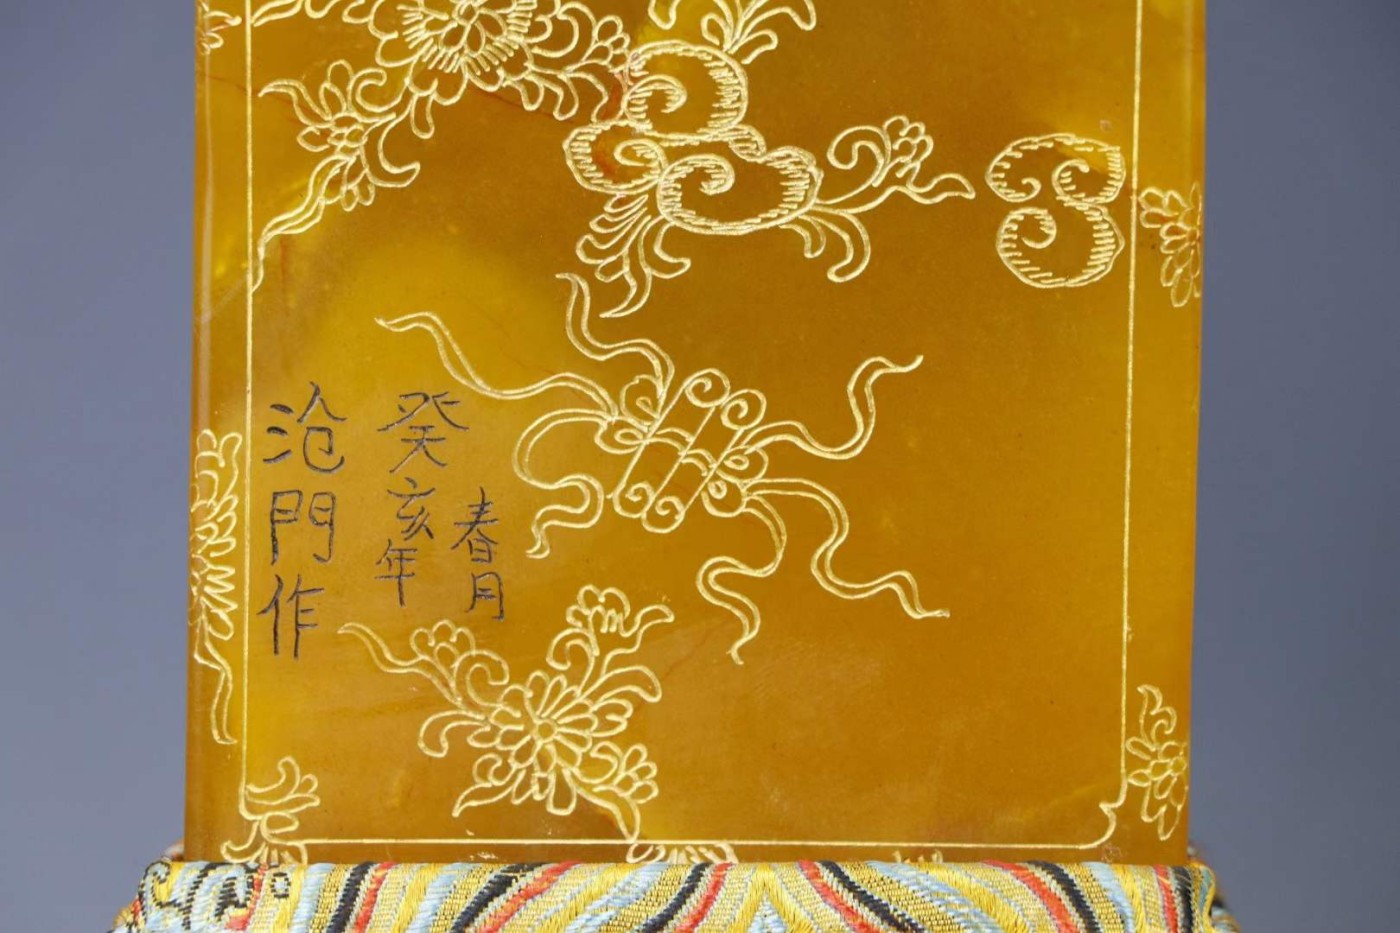 春月
癸亥年
沧門作